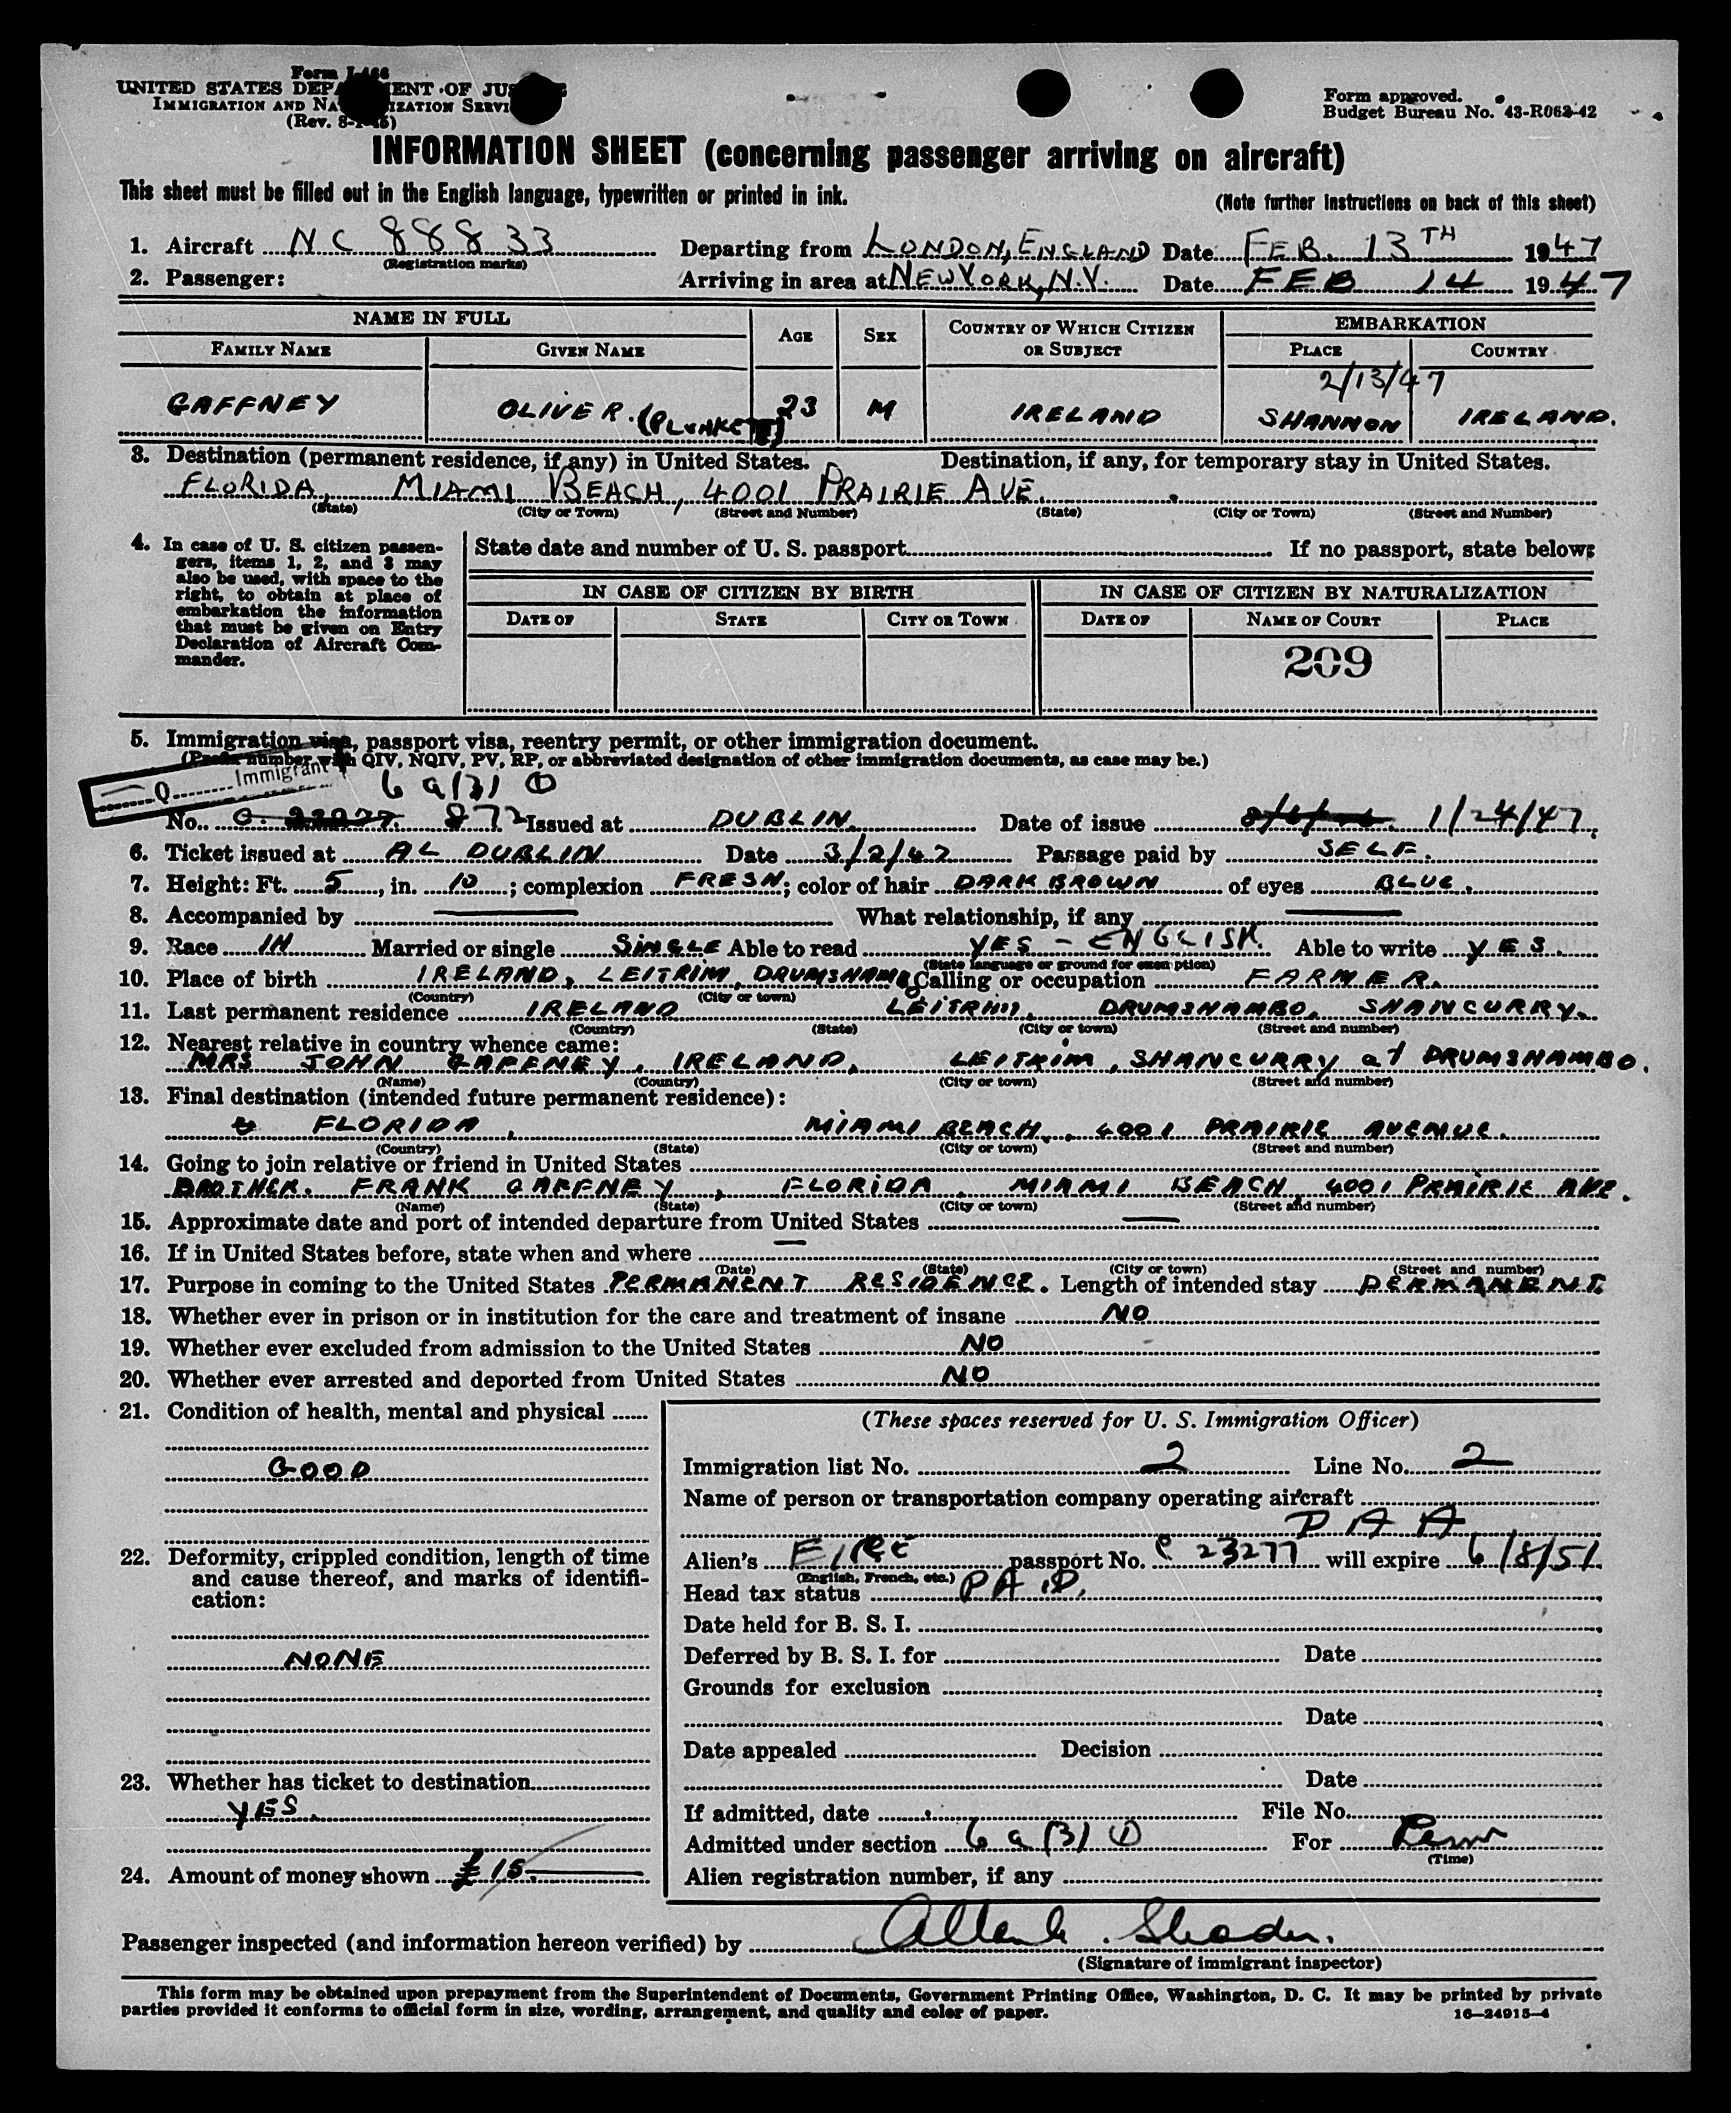 Form I-466
UNITED STATES DEPARTMENT OF JUSTICE
IMMIGRATION AND NATURALIZATION SERVICE
(Rev. 8-1-45)
Form approved.
Budget Bureau No. 43-R062-42
INFORMATION SHEET (concerning passenger arriving on aircraft)
This sheet must be filled out in the English language, typewritten or printed in ink.
(Note further instructions on back of this sheet)
1. Aircraft NC 88833 Departing from LONDON, ENGLAND Date FEB. 13TH 1947
(Registration marks)
2. Passenger: Arriving in area at NEW YORK, N.Y. Date FEB 14 1947
NAME IN FULL AGE SEX COUNTRY OF WHICH CITIZEN OR SUBJECT EMBARKATION
FAMILY NAME GIVEN NAME PLACE COUNTRY
2/13/47
GAFFNEY OLIVER. (PLUNKETT) 23 M IRELAND SHANNON IRELAND.
3. Destination (permanent residence, if any) in United States. Destination, if any, for temporary stay in United States.
FLORIDA, MIAMI BEACH, 4001 PRAIRIE AVE.
(State) (City or Town) (Street and Number) (State) (City or Town) (Street and Number)
4. In case of U. S. citizen passen-
gers, items 1, 2, and 3 may
also be used, with space to the
right, to obtain at place of
embarkation the information
that must be given on Entry
Declaration of Aircraft Com-
mander.
State date and number of U. S. passport If no passport, state below:
IN CASE OF CITIZEN BY BIRTH IN CASE OF CITIZEN BY NATURALIZATION
DATE OF STATE CITY OR TOWN DATE OF NAME OF COURT PLACE
209
5. Immigration visa, passport visa, reentry permit, or other immigration document.
(Prefix number with QIV, NQIV, PV, RP, or abbreviated designation of other immigration documents, as case may be.)
Q Immigrant
6 a (3) ①
No. 872 Issued at DUBLIN. Date of issue 1/24/47.
6. Ticket issued at AL DUBLIN Date 3/2/47 Passage paid by SELF.
7. Height: Ft. 5, in. 10; complexion FRESH; color of hair DARK BROWN of eyes BLUE.
8. Accompanied by — What relationship, if any —
9. Race IH Married or single SINGLE Able to read YES - ENGLISH. Able to write YES.
(State language or ground for exemption)
10. Place of birth IRELAND, LEITRIM, DRUMSHAMBO Calling or occupation FARMER.
(Country) (City or town)
11. Last permanent residence IRELAND LEITRIM, DRUMSHAMBO, SHANCURRY.
(Country) (State) (City or town) (Street and number)
12. Nearest relative in country whence came:
MRS JOHN GAFFNEY, IRELAND, LEITRIM, SHANCURRY at DRUMSHAMBO.
(Name) (Country) (City or town) (Street and number)
13. Final destination (intended future permanent residence):
FLORIDA, MIAMI BEACH, 4001 PRAIRIE AVENUE.
(Country) (State) (City or town) (Street and number)
14. Going to join relative or friend in United States
BROTHER. FRANK GAFFNEY, FLORIDA, MIAMI BEACH 4001 PRAIRIE AVE.
(Name) (State) (City or town) (Street and number)
15. Approximate date and port of intended departure from United States —
16. If in United States before, state when and where —
(Date) (State) (City or town) (Street and number)
17. Purpose in coming to the United States PERMANENT RESIDENCE. Length of intended stay PERMANENT.
18. Whether ever in prison or in institution for the care and treatment of insane NO
19. Whether ever excluded from admission to the United States NO
20. Whether ever arrested and deported from United States NO
21. Condition of health, mental and physical
GOOD
22. Deformity, crippled condition, length of time
and cause thereof, and marks of identifi-
cation:
NONE
23. Whether has ticket to destination
YES.
24. Amount of money shown £15.
(These spaces reserved for U. S. Immigration Officer)
Immigration list No. 2 Line No. 2
Name of person or transportation company operating aircraft
P A A
Alien's EIRE passport No. C 23277 will expire 6/8/51.
(English, French, etc.)
Head tax status PAID.
Date held for B. S. I.
Deferred by B. S. I. for Date
Grounds for exclusion
Date
Date appealed Decision
Date
If admitted, date File No.
Admitted under section 6 a (3) ① For Perm
(Time)
Alien registration number, if any
Passenger inspected (and information hereon verified) by
(Signature of immigrant inspector)
This form may be obtained upon prepayment from the Superintendent of Documents, Government Printing Office, Washington, D. C. It may be printed by private
parties provided it conforms to official form in size, wording, arrangement, and quality and color of paper. 16—24915-4